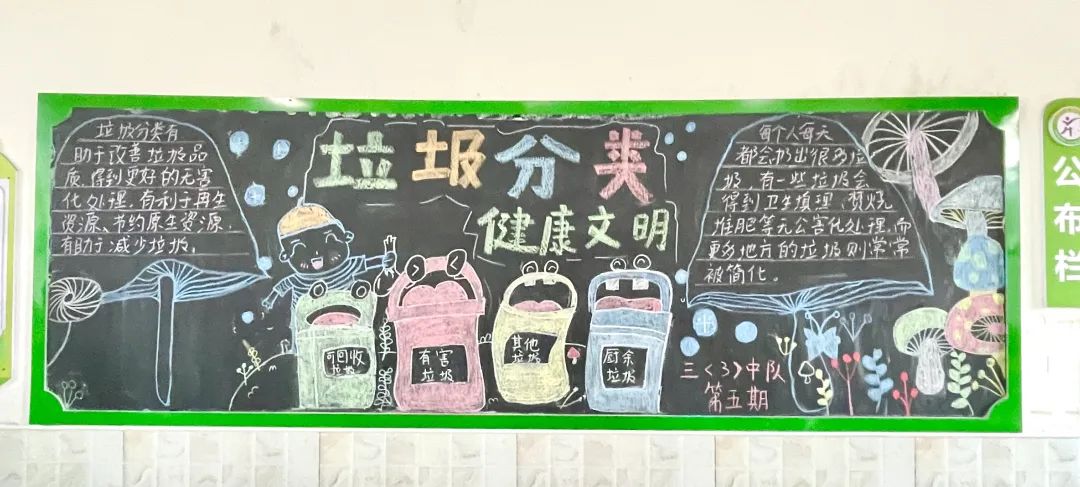 垃圾分类
健康文明
垃圾分类有
助于改善垃圾品
质,得到更好的无害
化处理,有利于再生
资源、节约原生资源,
有助于减少垃圾。
每个人每天
都会扔出很多垃
圾,有一些垃圾会
得到卫生填埋、焚烧
堆肥等无公害化处理,而
更多地方的垃圾则常常
被简化。
可回收
垃圾
有害
垃圾
其他
垃圾
厨余
垃圾
三〈3〉中队
第五期
公布栏